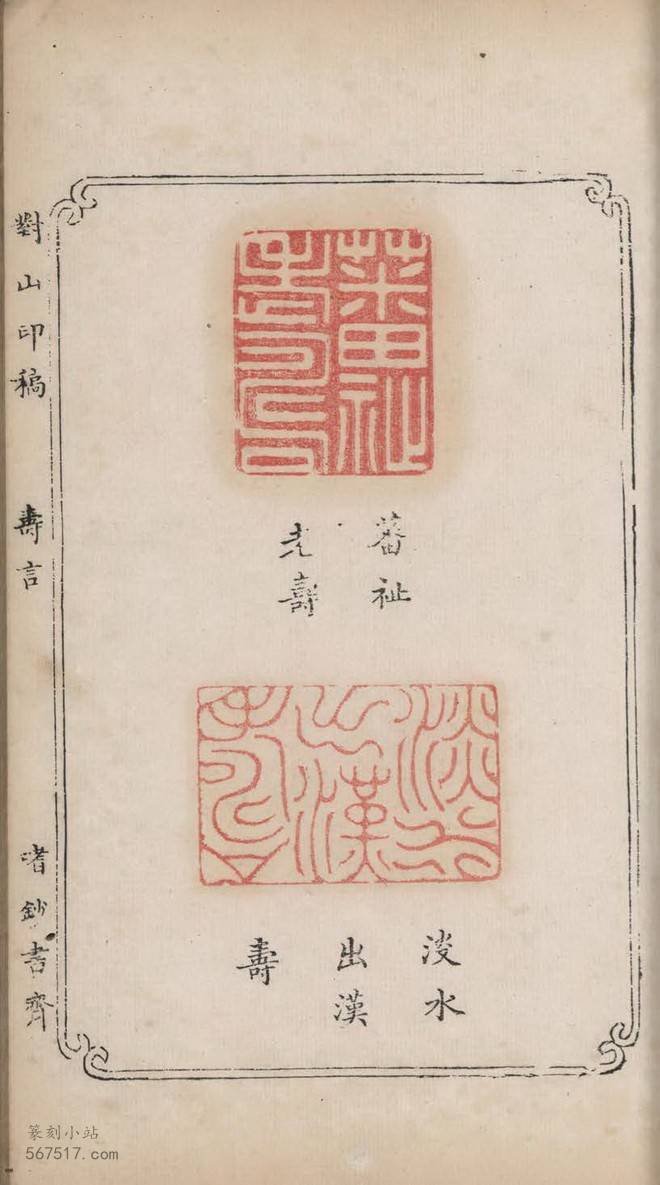 蕃祉
老壽
淡水
出漢
壽
對山印稿 壽言
嗜鈔書齋
篆刻小站
567517.com